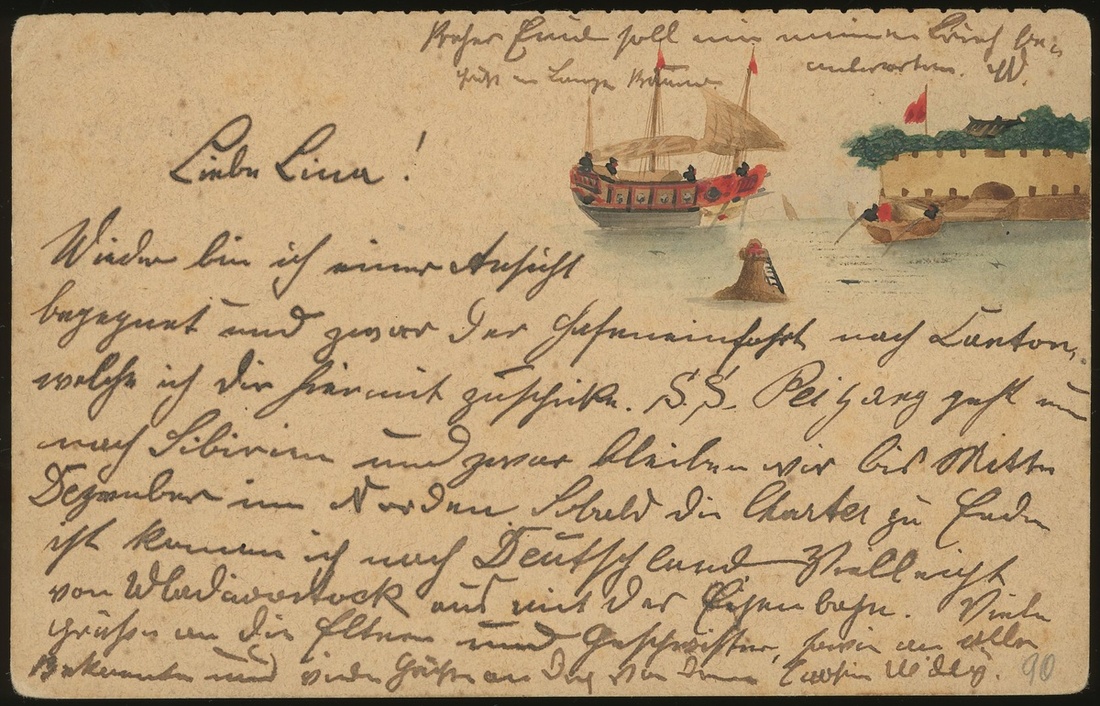 soll mir meinen Brief be-
antworten. W.
Liebe Lina!
Wieder bin ich einer Ansicht
begegnet und zwar der Hafeneinfahrt nach Canton,
welche ich dir hiermit zuschicke. S.S. Peiyang geht nun
nach Sibirien und zwar bleiben wir bis Mitte
Dezember im Norden Sobald die Charter zu Ende
ist komme ich nach Deutschland Vielleicht
von Wladiwostock aus mit der Eisenbahn. Viele
Grüße an die Eltern und Geschwister, sowie an alle
Bekannte und viele Grüße an Dich von Deinem Cousin Willy.
90